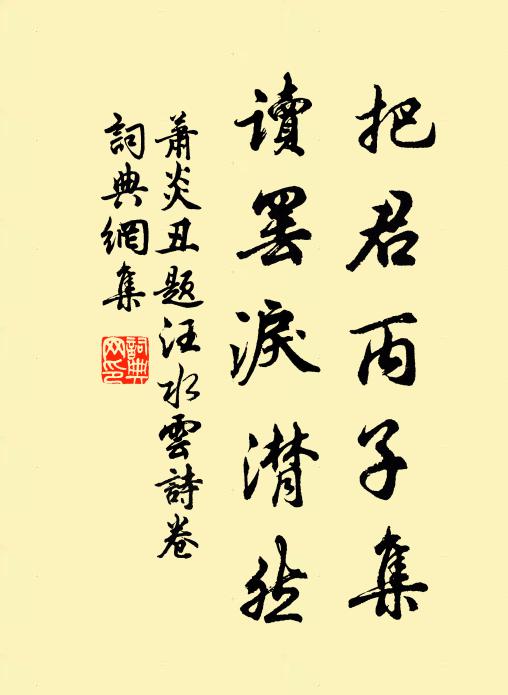 把君丙子集
讀罷淚潸然
蕭炎丑題汪水雲詩卷
詞典網集
詞典網印